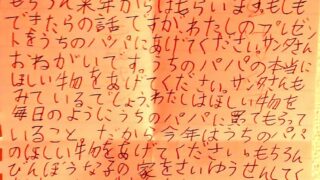 もちろん来年からはもらいます。もしも
できたらの話ですが、わたしのプレゼン
をうちのパパにあげてください。サンタさん
おねがいです。うちのパパの本当に
ほしい物をあげてください。サンタさんも
みているでしょう。わたしはほしい物を
毎日のようにうちのパパに買てもらって
いること。だから今年はうちのパパ
のほしい物をあげてください。もちろん
びんぼうな子の家をさいゆうせんしてく